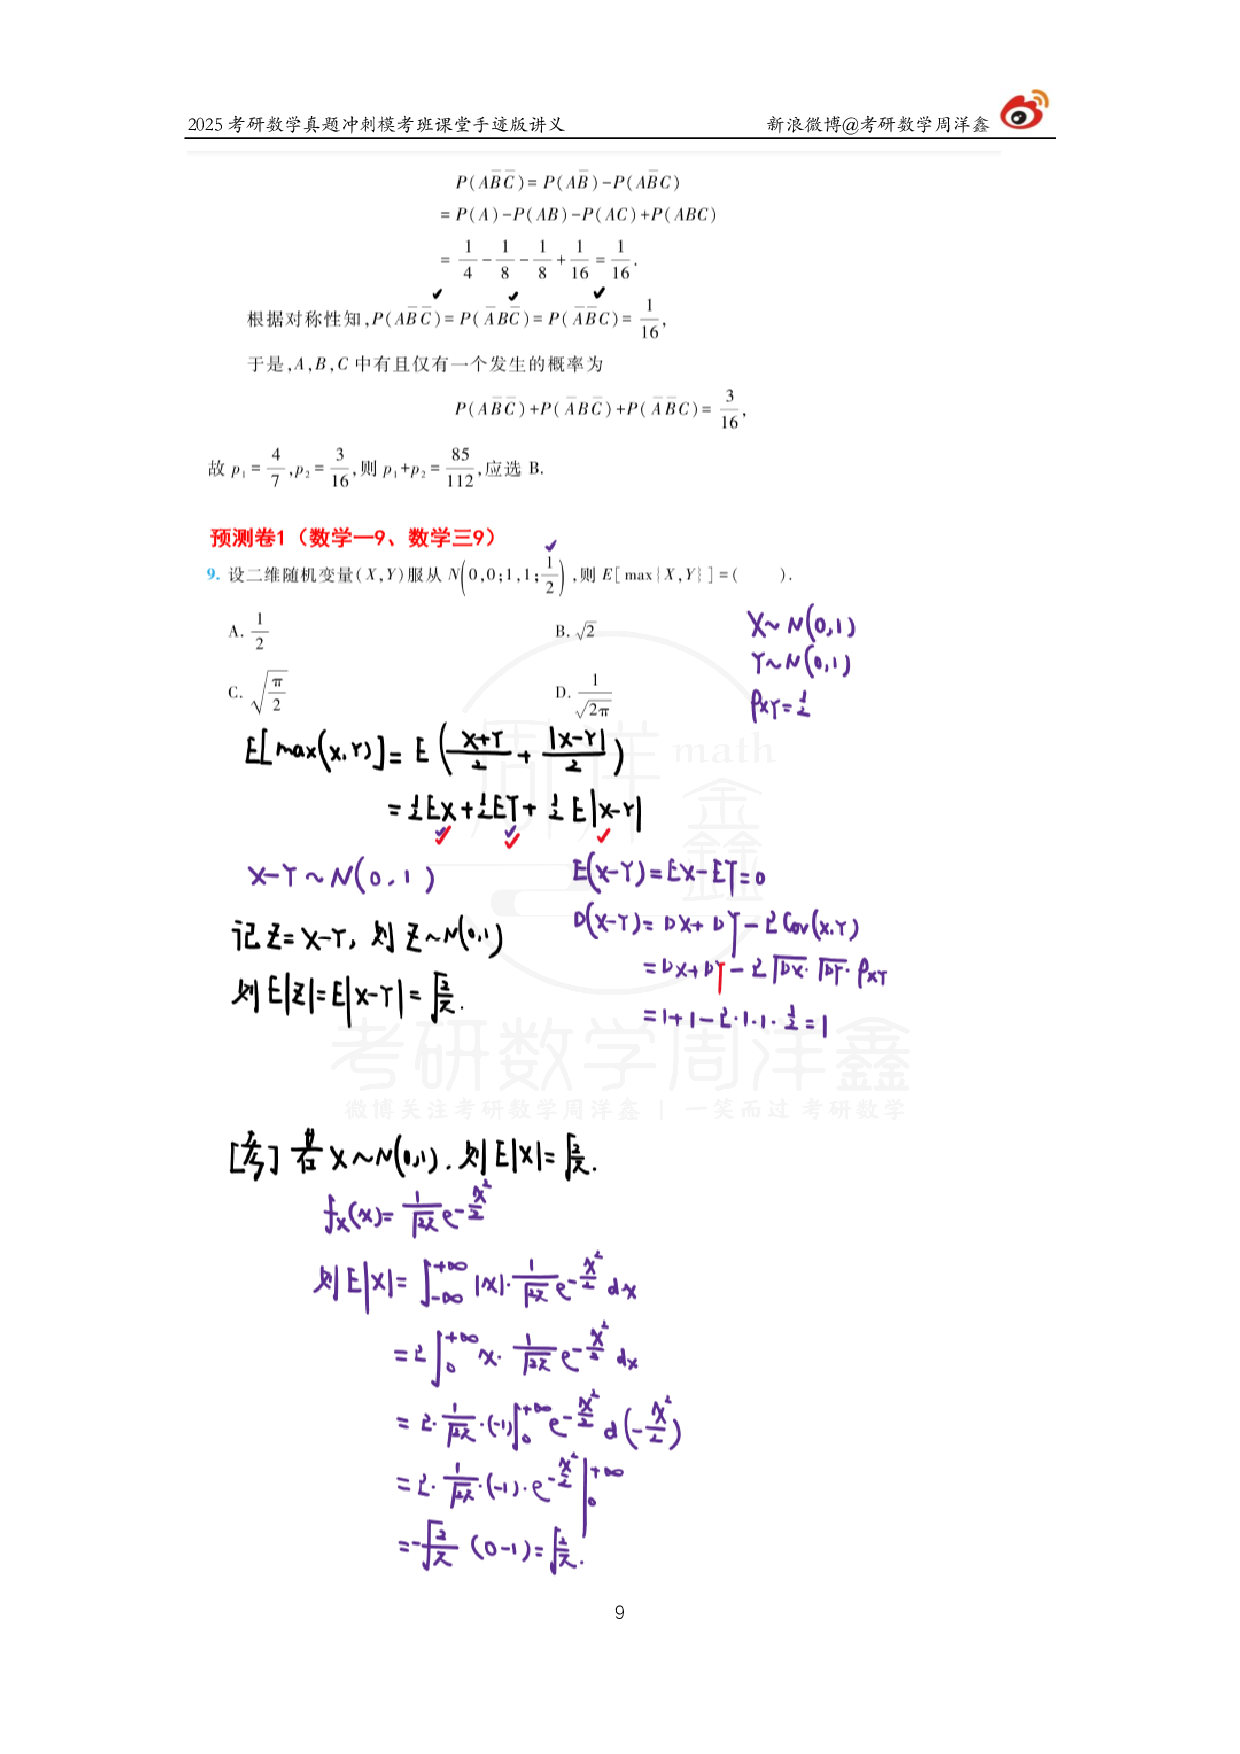 2025考研数学真题冲刺模考班课堂手迹版讲义 新浪微博@考研数学周洋鑫
P(AB̅C̅)=P(AB̅)-P(AB̅C)
=P(A)-P(AB)-P(AC)+P(ABC)
=1/4-1/8-1/8+1/16=1/16.
根据对称性知,P(AB̅C̅)=P(A̅BC̅)=P(A̅B̅C)=1/16,
于是,A,B,C中有且仅有一个发生的概率为
P(AB̅C̅)+P(A̅BC̅)+P(A̅B̅C)=3/16,
故p₁=4/7,p₂=3/16,则p₁+p₂=85/112,应选 B.
预测卷1（数学一9、数学三9）
9. 设二维随机变量(X,Y)服从N(0,0;1,1;1/2),则E[max{X,Y}]=( ).
A. 1/2 B. √2
C. √(π/2) D. 1/√(2π)
X~N(0,1)
Y~N(0,1)
ρXY=1/2
E[max(X,Y)]=E((X+Y)/2+|X-Y|/2)
=½EX+½EY+½E|X-Y|
X-Y~N(0,1)
E(X-Y)=EX-EY=0
D(X-Y)=DX+DY-2Cov(X,Y)
=DX+DY-2√DX·√DY·ρXY
=1+1-2·1·1·½=1
记Z=X-Y, 则Z~N(0,1)
则E|Z|=E|X-Y|=√(2/π).
周洋鑫math
考研数学周洋鑫
微博关注考研数学周洋鑫 | 一笑而过 考研数学
[考] 若X~N(0,1), 则E|X|=√(2/π).
fX(x)=1/√(2π) e^(-x²/2)
则E|X|=∫_{-∞}^{+∞}|x|·1/√(2π) e^(-x²/2)dx
=2∫_0^{+∞}x·1/√(2π) e^(-x²/2)dx
=2·1/√(2π)·(-1)∫_0^{+∞}e^(-x²/2)d(-x²/2)
=2·1/√(2π)·(-1)·e^(-x²/2)|_0^{+∞}
=-√(2/π)(0-1)=√(2/π).
9